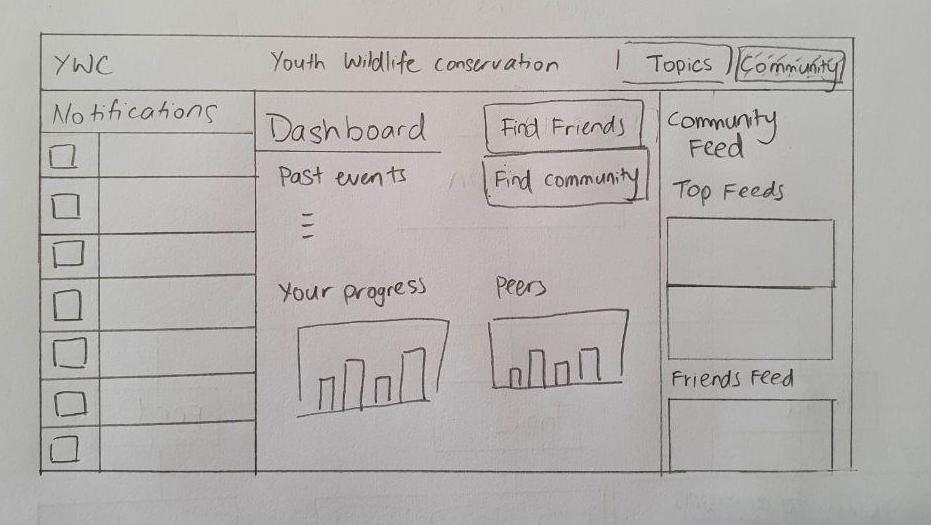 YWC
Youth Wildlife conservation
Topics
Community
Notifications
Dashboard
Find Friends
Past events
Find community
Your progress
Peers
Community
Feed
Top Feeds
Friends Feed